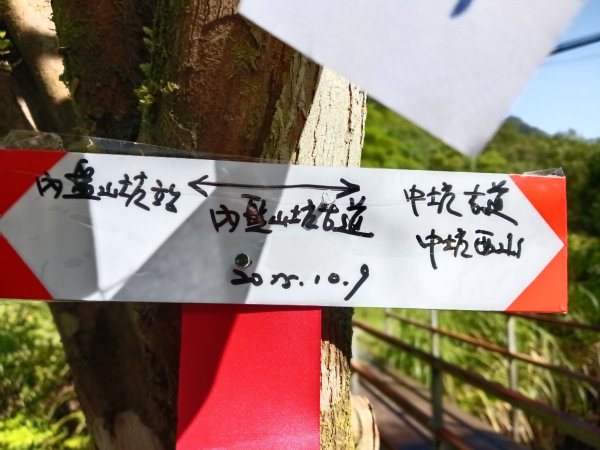 內盤山坑站
內盤山坑古道
中坑古道
中坑西山
2025.10.9